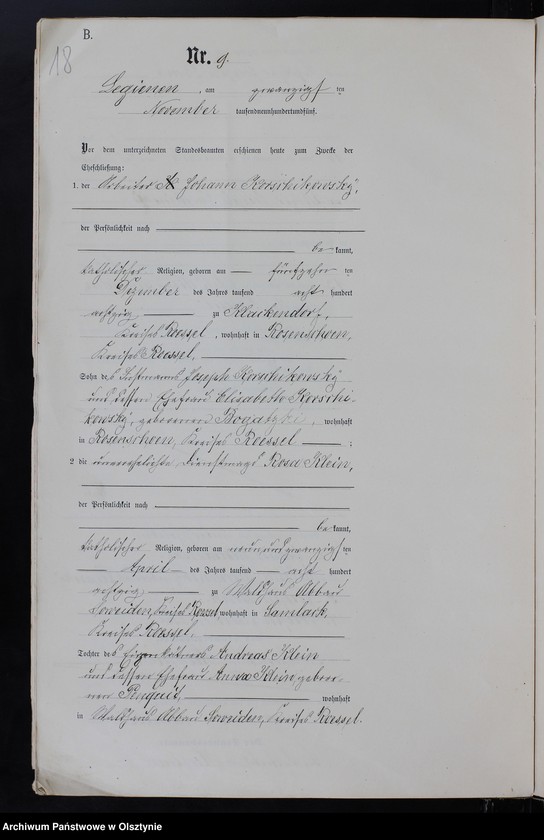 B.
18
Nr. 9.
Legienen, am zwanzigsten
November tausendneunhundertundfünf.
Vor dem unterzeichneten Standesbeamten erschienen heute zum Zwecke der
Eheschließung:
1. der Arbeiter Johann Korschikowsky,
der Persönlichkeit nach
be kannt,
katholischer Religion, geboren am fünfzehnten
Dezember des Jahres tausend acht hundert
achtzig zu Klackendorf,
Kreises Roessel, wohnhaft in Rosenschoen,
Kreises Roessel,
Sohn des Instmanns Joseph Korschikowsky
und dessen Ehefrau Elisabeth Korschi-
kowsky, geborenen, wohnhaft
in Rosenschoen, Kreises Roessel ;
2 die unverehelichte Dienstmagd Rosa Klein,
der Persönlichkeit nach
be kannt,
katholischer Religion, geboren am neunundzwanzigsten
April des Jahres tausend acht hundert
achtzig zu Waldhaus Abbau
Soweiden, Kreises Roessel wohnhaft in Samlack,
Kreises Roessel,
Tochter des Eigenkätners Andreas Klein
und dessen Ehefrau Anna Klein, gebore-
nen Penquitt, wohnhaft
in Waldhaus Abbau Soweiden, Kreises Roessel.
Archiwum Państwowe w Olsztynie